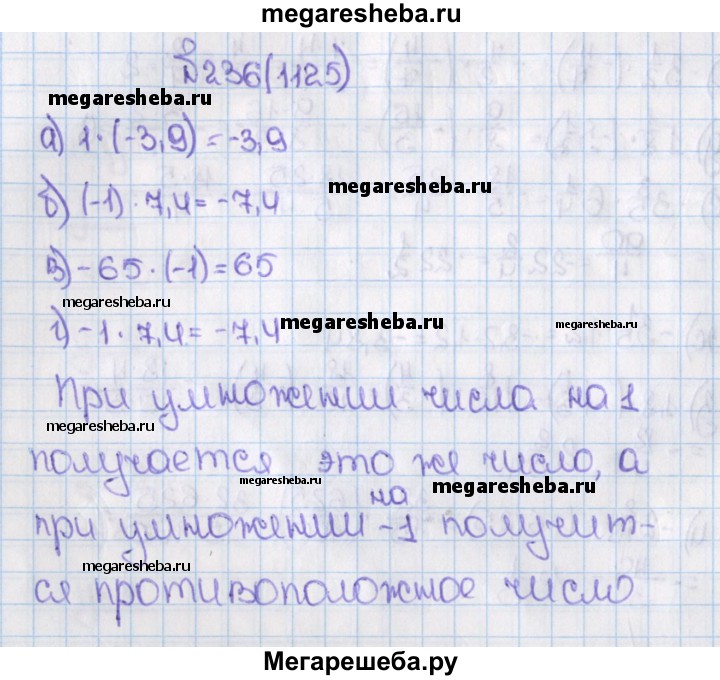 megaresheba.ru
№236(1125)
megaresheba.ru
а) 1·(-3,9) = -3,9
megaresheba.ru
б) (-1)·7,4 = -7,4
в) -65·(-1) = 65
megaresheba.ru
г) -1·7,4 = -7,4
megaresheba.ru
megaresheba.ru
При умножении числа на 1
megaresheba.ru
получается это же число, а
megaresheba.ru
megaresheba.ru
на
при умножении -1 получит-
megaresheba.ru
ся противоположное число
Мегарешеба.ру